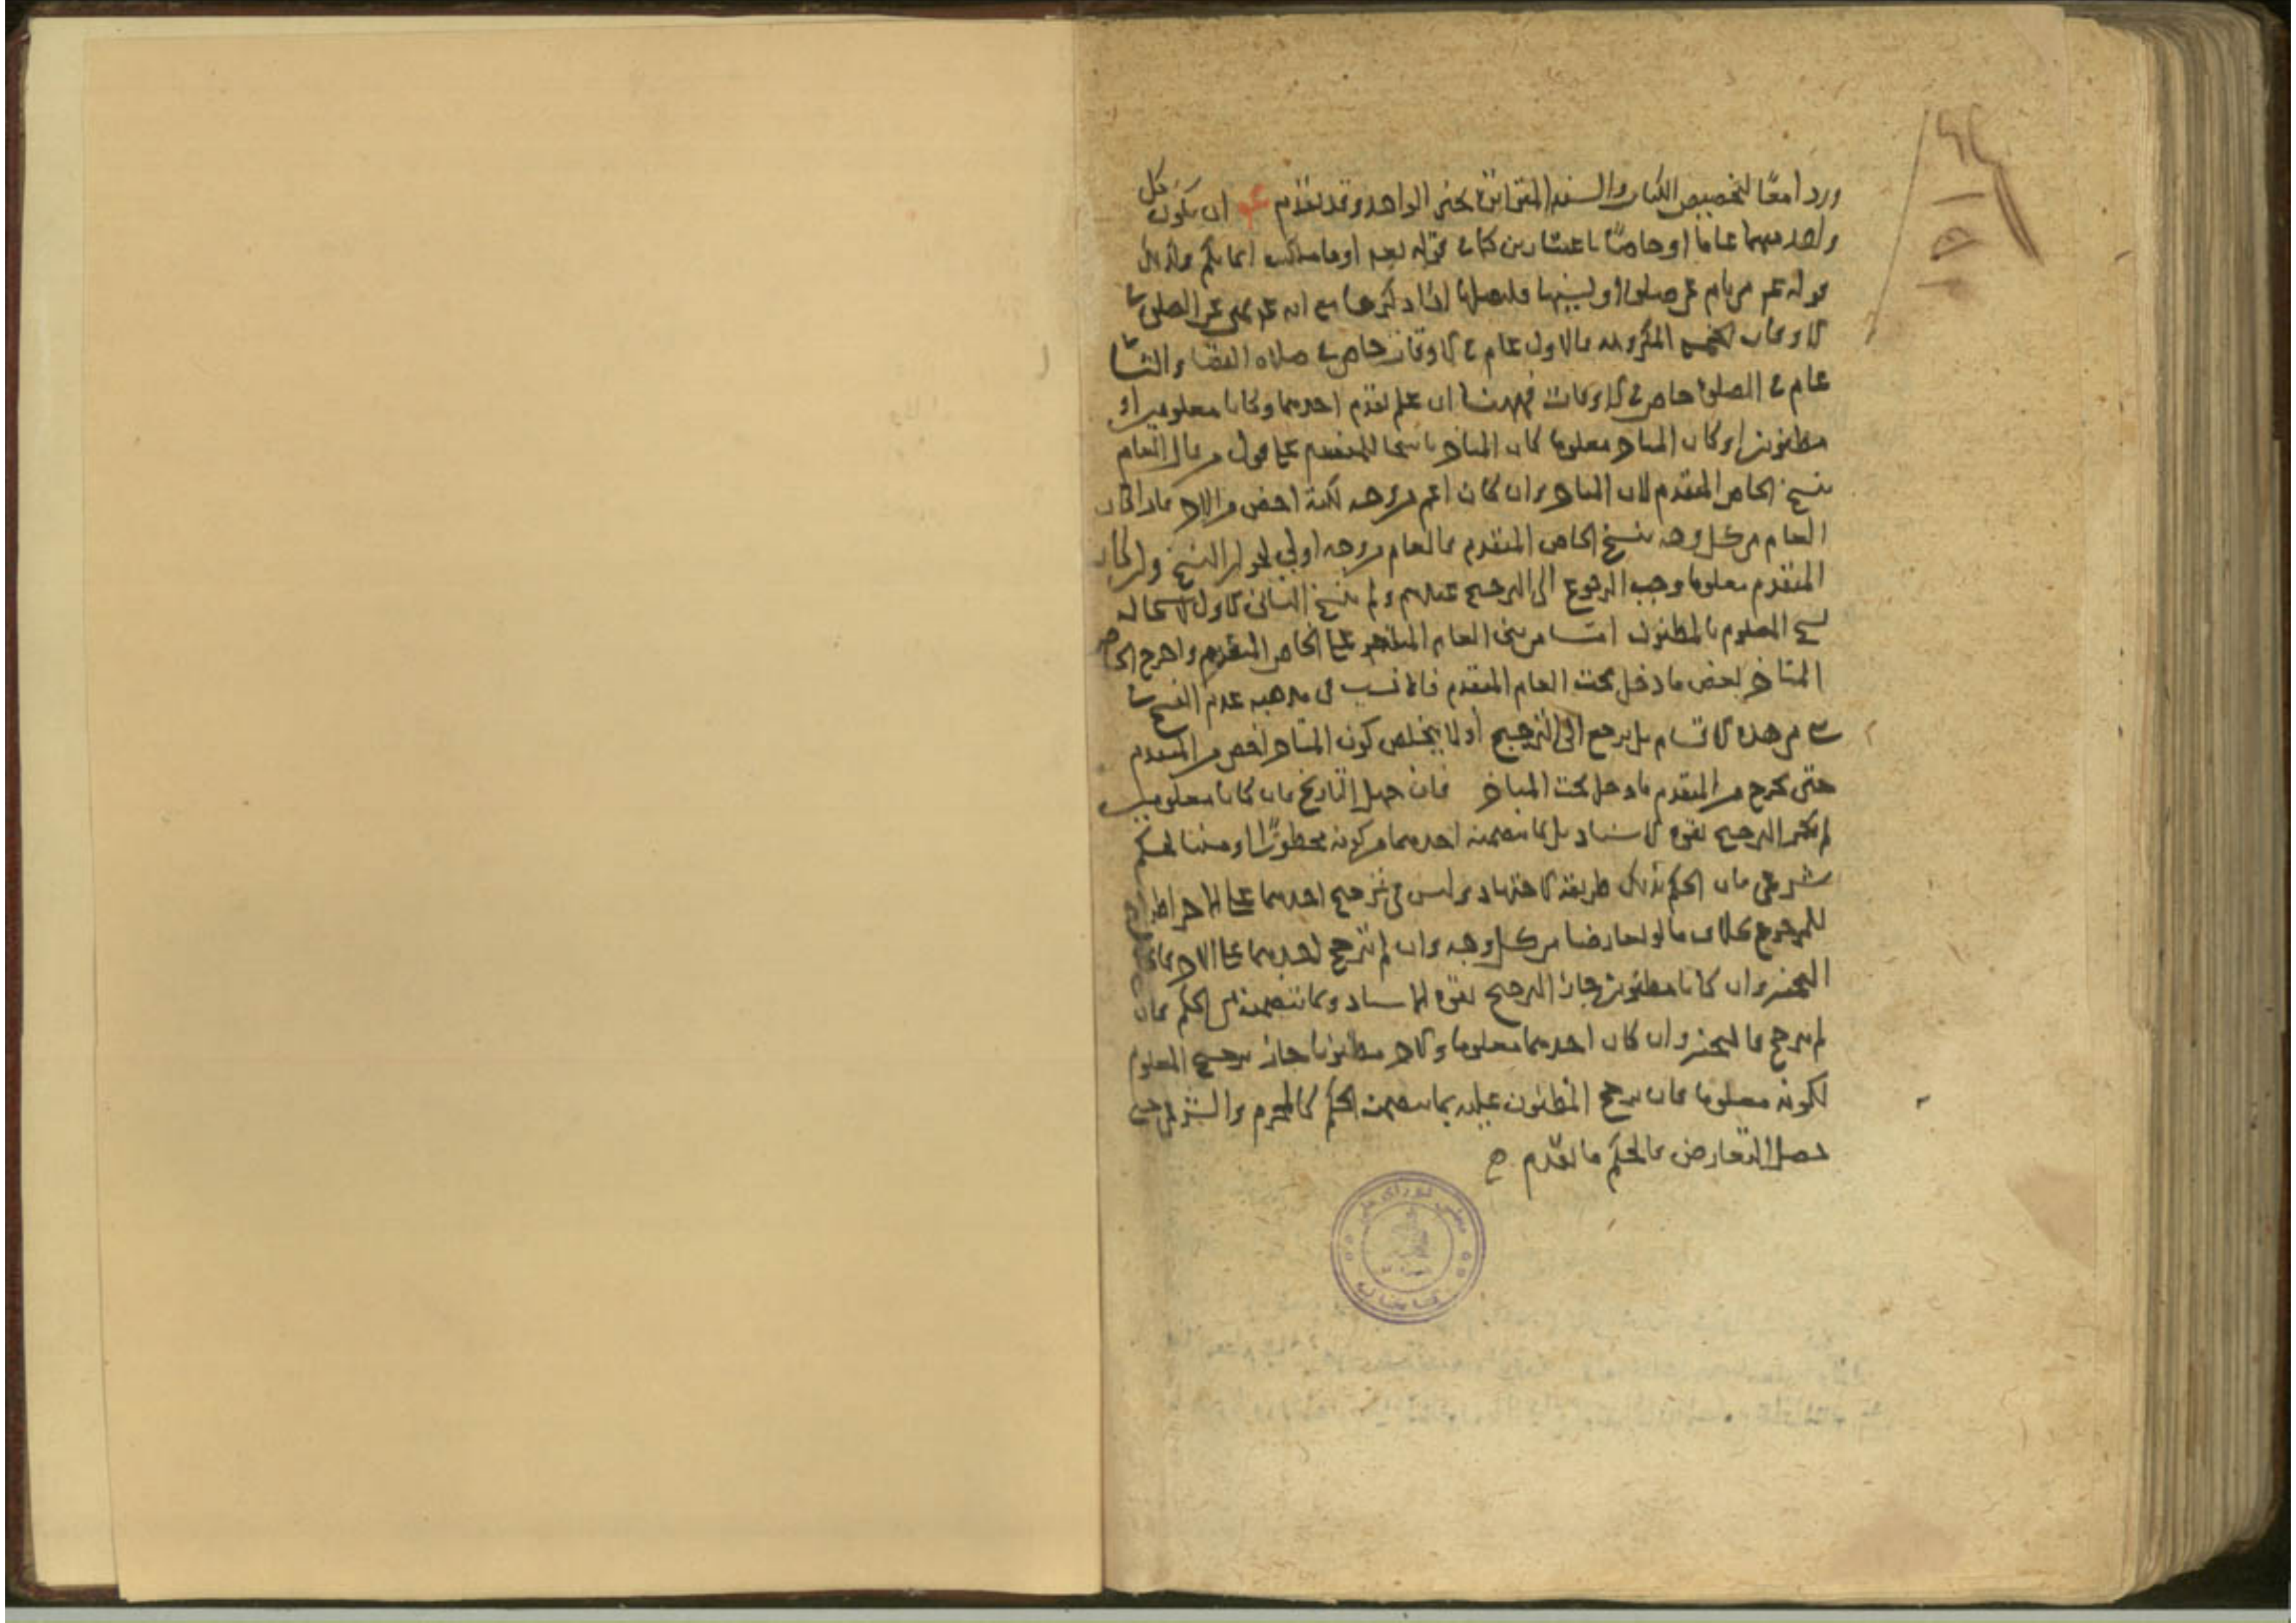 وردا معًا لتخصيص الكتاب والسنة المتواترة بخبر الواحد وقد تقدم ان يكون كل
واحد منهما عاما او خاصًا باعتبارين كما في قوله تعالى او ما ملكت ايمانكم وكذلك
قوله عم من نام عن صلوة او نسيها فليصلها اذا ذكرها مع انه عم نهى عن الصلوة في
الاوقات الخمسة المكروهة فالاول عام في الاوقات خاص في صلاة القضاء والثاني
عام في الصلوة خاص في الاوقات فههنا ان علم تقدم احدهما وكانا معلومين او
مظنونين او كان المتاخر معلوما كان المتاخر ناسخا للمتقدم على قول من قال العام
ينسخ الخاص المتقدم لان المتاخر وان كان اعم من وجه لكنه اخص من الاخر فاذا كان
العام من كل وجه ينسخ الخاص المتقدم فالعام من وجه اولى بجواز النسخ وان كان
المتقدم معلوما وجب الرجوع الى الترجيح عندهم ولم ينسخ الثاني الاول لاستحالة
نسخ المعلوم بالمظنون اما من بنى العام المتاخر على الخاص المتقدم واخرج الخاص
المتاخر بعض ما دخل تحت العام المتقدم فالانسب في مذهبه عدم النسخ في
شي من هذه الاقسام بل يرجع الى الترجيح اذ لا يتخلص كون المتاخر اخص من المتقدم
حتى يخرج من المتقدم ما دخل تحت المتاخر فان جهل التاريخ فان كانا معلومين
لم يكن الترجيح بقوة الاسناد بل بما يتضمنه احدهما من كونه محظورًا او مثبتا لحكم
شرعي فان الحكم بذلك طريقة الاجتهاد وليس في ترجيح احدهما على الاخر اطراح
للمرجوح بخلاف ما لو تعارضا من كل وجه وان لم يترجح احدهما على الاخر فالحكم
التخيير وان كانا مظنونين جاز الترجيح بقوة الاسناد وبما يتضمنه من الحكم فان
لم يترجح فالتخيير وان كان احدهما معلوما والاخر مظنونا جاز ترجيح المعلوم
لكونه معلوما فان ترجح المظنون عليه بما يتضمن الحكم كالمحرم والشرعي حتى
حصل التعارض فالحكم ما تقدم
مجلس شورای ملی
کتابخانه